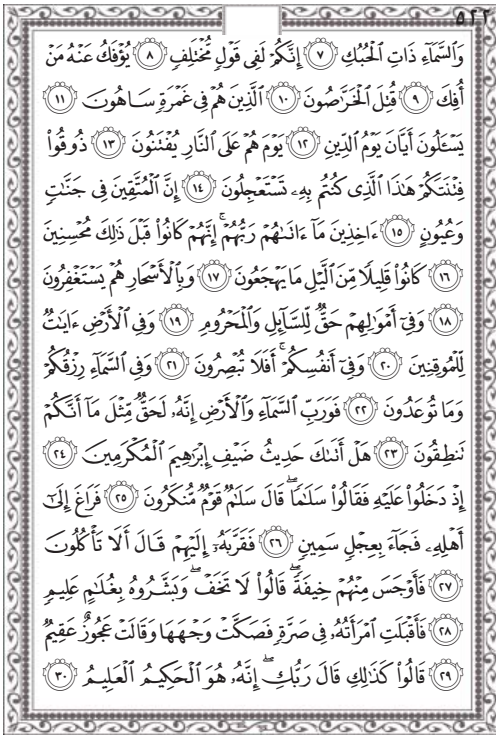 ٥٢٢
وَالسَّمَآءِ ذَاتِ الْحُبُكِ ﴿٧﴾ إِنَّكُمْ لَفِى قَوْلٍ مُّخْتَلِفٍ ﴿٨﴾ يُؤْفَكُ عَنْهُ مَنْ
أُفِكَ ﴿٩﴾ قُتِلَ الْخَرَّٰصُونَ ﴿١٠﴾ الَّذِينَ هُمْ فِى غَمْرَةٍ سَاهُونَ ﴿١١﴾
يَسْـَٔلُونَ أَيَّانَ يَوْمُ الدِّينِ ﴿١٢﴾ يَوْمَ هُمْ عَلَى النَّارِ يُفْتَنُونَ ﴿١٣﴾ ذُوقُوا۟
فِتْنَتَكُمْ هَٰذَا الَّذِى كُنتُم بِهِۦ تَسْتَعْجِلُونَ ﴿١٤﴾ إِنَّ الْمُتَّقِينَ فِى جَنَّٰتٍ
وَعُيُونٍ ﴿١٥﴾ ءَاخِذِينَ مَآ ءَاتَىٰهُمْ رَبُّهُمْ ۚ إِنَّهُمْ كَانُوا۟ قَبْلَ ذَٰلِكَ مُحْسِنِينَ
﴿١٦﴾ كَانُوا۟ قَلِيلًا مِّنَ الَّيْلِ مَا يَهْجَعُونَ ﴿١٧﴾ وَبِالْأَسْحَارِ هُمْ يَسْتَغْفِرُونَ
﴿١٨﴾ وَفِىٓ أَمْوَٰلِهِمْ حَقٌّ لِّلسَّآئِلِ وَالْمَحْرُومِ ﴿١٩﴾ وَفِى الْأَرْضِ ءَايَٰتٌ
لِّلْمُوقِنِينَ ﴿٢٠﴾ وَفِىٓ أَنفُسِكُمْ ۚ أَفَلَا تُبْصِرُونَ ﴿٢١﴾ وَفِى السَّمَآءِ رِزْقُكُمْ
وَمَا تُوعَدُونَ ﴿٢٢﴾ فَوَرَبِّ السَّمَآءِ وَالْأَرْضِ إِنَّهُۥ لَحَقٌّ مِّثْلَ مَآ أَنَّكُمْ
تَنطِقُونَ ﴿٢٣﴾ هَلْ أَتَىٰكَ حَدِيثُ ضَيْفِ إِبْرَٰهِيمَ الْمُكْرَمِينَ ﴿٢٤﴾
إِذْ دَخَلُوا۟ عَلَيْهِ فَقَالُوا۟ سَلَٰمًا ۖ قَالَ سَلَٰمٌ قَوْمٌ مُّنكَرُونَ ﴿٢٥﴾ فَرَاغَ إِلَىٰٓ
أَهْلِهِۦ فَجَآءَ بِعِجْلٍ سَمِينٍ ﴿٢٦﴾ فَقَرَّبَهُۥٓ إِلَيْهِمْ قَالَ أَلَا تَأْكُلُونَ
﴿٢٧﴾ فَأَوْجَسَ مِنْهُمْ خِيفَةً ۖ قَالُوا۟ لَا تَخَفْ ۖ وَبَشَّرُوهُ بِغُلَٰمٍ عَلِيمٍ
﴿٢٨﴾ فَأَقْبَلَتِ امْرَأَتُهُۥ فِى صَرَّةٍ فَصَكَّتْ وَجْهَهَا وَقَالَتْ عَجُوزٌ عَقِيمٌ
﴿٢٩﴾ قَالُوا۟ كَذَٰلِكِ قَالَ رَبُّكِ ۖ إِنَّهُۥ هُوَ الْحَكِيمُ الْعَلِيمُ ﴿٣٠﴾